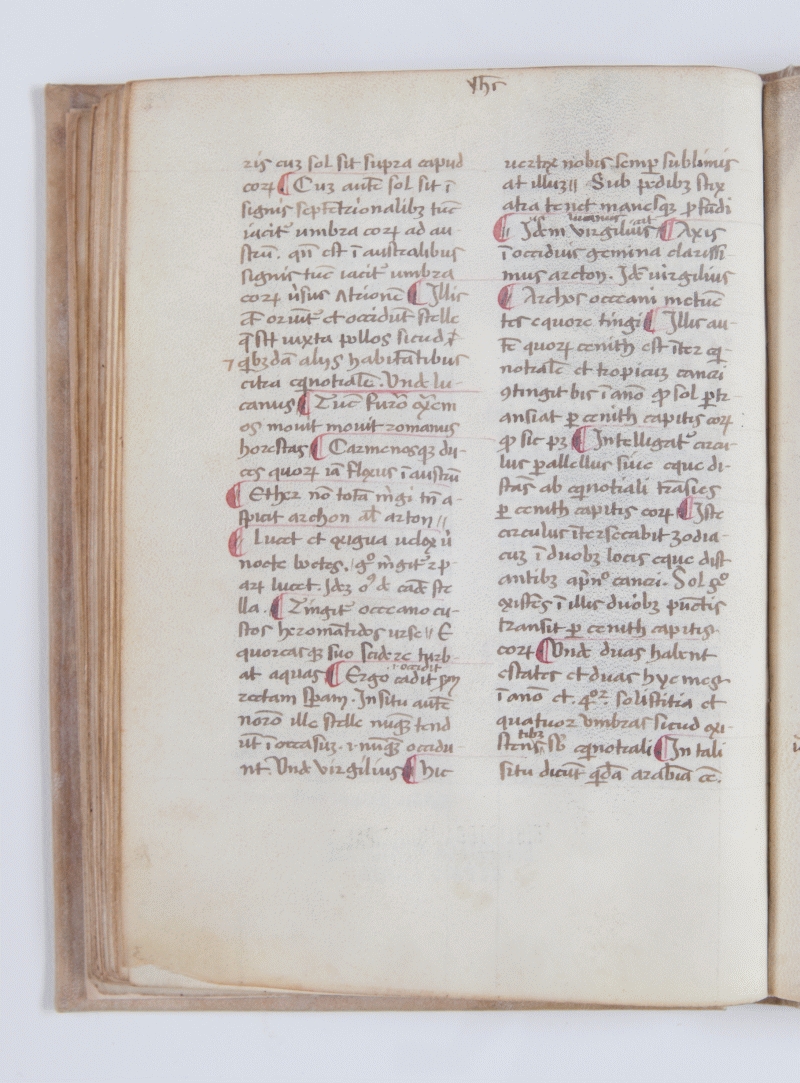 yhs
ris cuz sol sit supra capud
corꝝ ¶ Cuz autē sol sit ī
signis septētrionalibꝫ tūc
iacit umbra corꝝ ad au-
strū. qn̄ est ī australibus
signis tūc iacit umbra
corꝝ
¶ Illis
oriūt et occidūt stelle
iuxta pollos sicud
qbꝫdā alijs habitātibus
citra eq̄notialē. Unde lu-
canus ¶ Tūc furō
os mouit mouit romanus
horestas ¶ Carmenosqꝫ du-
ces quorꝝ iā flexus ī austrū
¶ Ether nō totā m̄gi tn̄ a-
spicit archon al' arton //
¶ Lucet et exigua uelox
nocte bootes.
lucet. Idez
lla. ¶ Tingit occeano cu-
stos heromātidos urse // E
quorcasqꝫ suo sidere turb-
at aquas ¶ Ergo cadit
rectam In situ autē
ille stelle nuqꝫ tend
ūt ī occasuꝫ. nuqꝫ occidu-
nt. Unde virgilius ¶ hic
uertex nobis semꝑ sublimis
at illuꝫ // Sub pedibꝫ stix
atra tenet manesqꝫ ꝓfūdi
lucanus
¶ Idem virgilius ¶ Axis
ī occiduis gemina clarissi-
mus arcton. Idē uirgilius
¶ Archos occeani metuē
tes equore tingi ¶ Illis au-
tē quorꝝ cenith est īter eq̄-
notialē et tropicuꝫ cancri
ꝯtingit bis ī āno ꝙ sol ꝑtr-
ansiat ꝑ cenith capitis corꝝ
ꝙ sic pꝫ ¶ Intelligatᷣ circu-
lus ꝑallellus siue eque di-
stās ab eq̄notiali trāsiēs
ꝑ cenith capitis corꝝ ¶ Iste
circulus ītersecabit zodia-
cuꝫ ī duobꝫ locis eque dist
antibꝫ cancri. Sol gͦ
existēs ī illis duobꝫ pūctis
transit ꝑ cenith capitis
corꝝ ¶ Unde duas habent
estates et duas hyemes
ī āno et .4ᵒʳ. solistitia et
quatuor umbras sicud exi-
tibꝫ
stens sb̄ eq̄notiali ¶ In tali
situ dicūt q̄dā arabia eē.